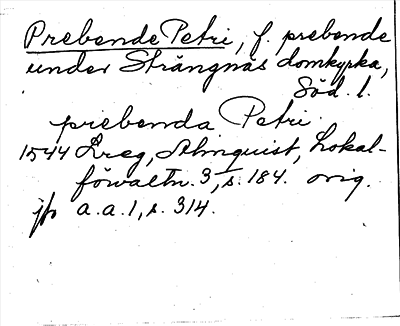 Prebende Petri, f. prebende
under Strängnäs domkyrka,
Söd. l.
prebenda Petri.
1544 Lreg, Almquist, Lokal-
förvaltn. 3, s. 184. orig.
jfr a.a. 1, s. 314.